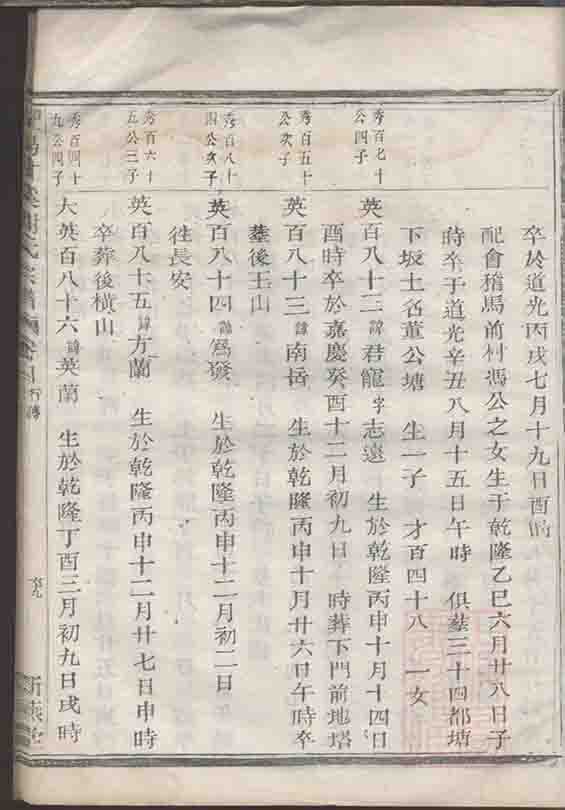 卒於道光丙戌七月十九日酉時
配會稽馬前村馮公之女生于乾隆乙巳六月廿八日子
時卒于道光辛丑八月十五日午時 俱塟三十四都塘
下坂土名董公塘 生一子 才百四十八 一女
秀百七十
公四子
英百八十三諱君龍字志遠 生於乾隆丙申十月十四日
酉時卒於嘉慶癸酉十二月初九日 時葬下門前地塔
秀百五十
公次子
英百八十三諱南岳 生於乾隆丙申十月廿六日午時卒
塟後王山
秀百八十
四公次子
英百八十四諱為發 生於乾隆丙申十二月初二日
徃長安
秀百六十
五公三子
英百八十五諱方蘭 生於乾隆丙申十二月廿七日申時
卒葬後橫山
秀百四十
九公四子
大英百八十六諱英蘭 生於乾隆丁酉三月初九日戌時
行傳